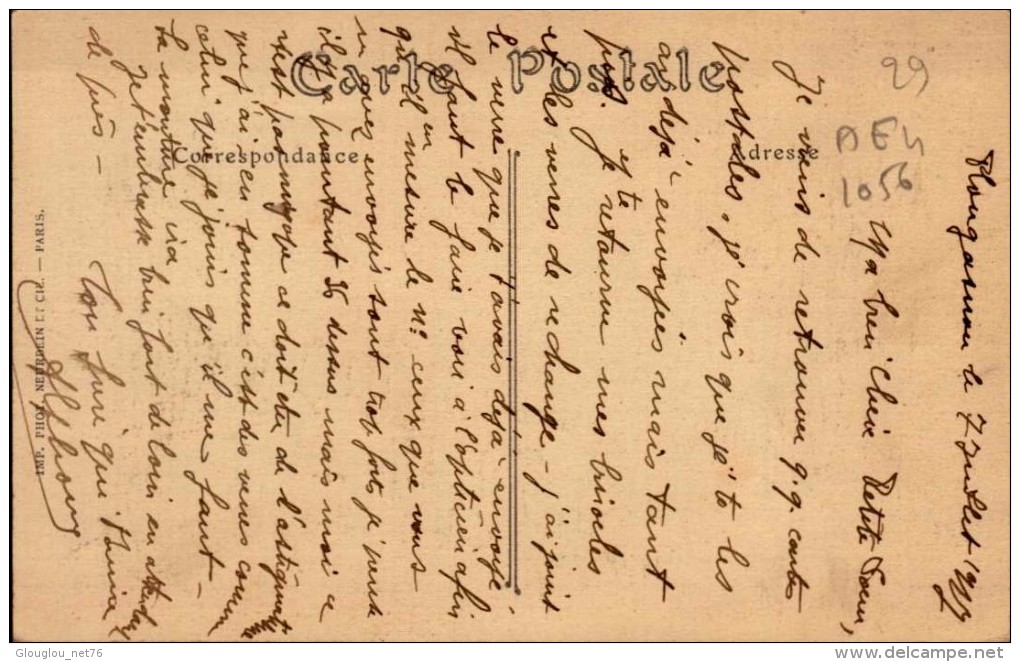 Carte Postale
Correspondance
Adresse
29
AEU
1056
Plougasnou le 7 Juillet
Ma bien Chère Petite Soeur,
Je viens de retrouver q.q. cartes
postales, je crois que je te les
ai déjà envoyées mais tant
pis. Je te retourne mes bricoles
et les verres de rechange - j'ai joint
le verre que je t'avais déjà envoyé
il faut le faire voir à l'opticien afin
qu'il en mesure le n° ceux que vous
m'avez envoyés sont trop forts je pense
il y a pourtant dessus mais moi
n'est pas myope ce doit être de
que j'ai en somme c'est des verres comme
celui que je joins qu'il me faut -
la monture ira
Je t'embrasse bien fort de loin en attendant
de près -
Ton frère qui t'aime
IMP. PHOT. NEURDEIN ET CIE. — PARIS.
Glouglou_net76